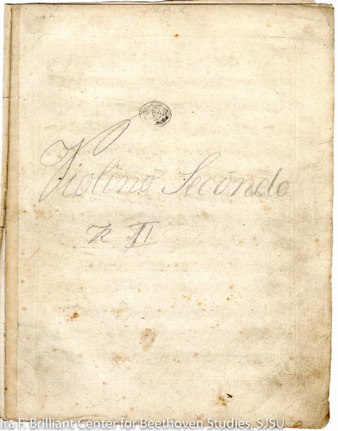 Violino Secondo
II
ra F. Brilliant Center for Beethoven Studies, SJSU